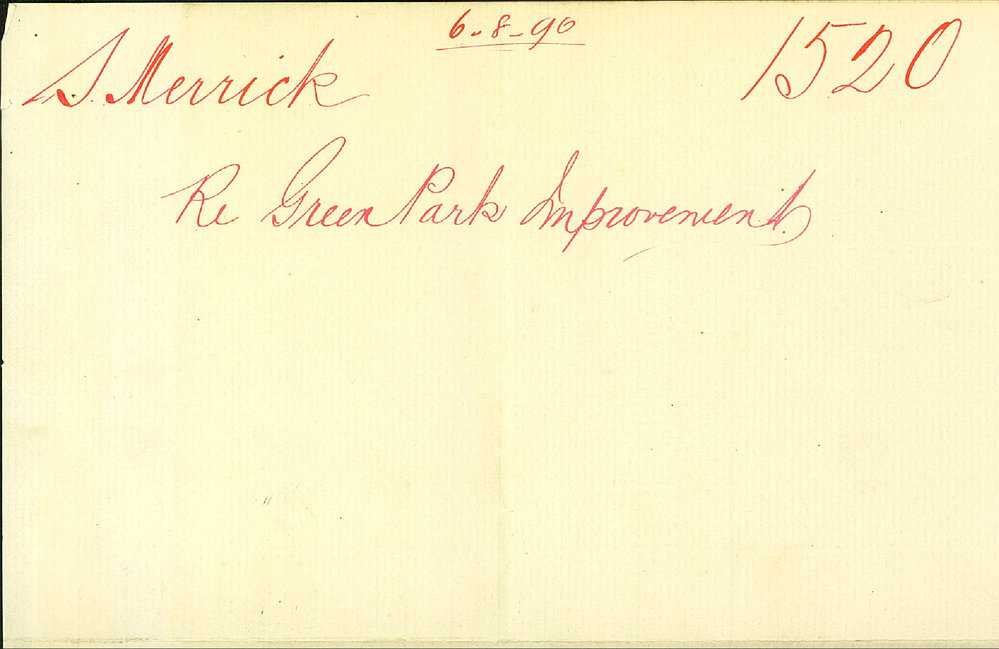 6-8-90
S. Merrick 1520
Re Green Park Improvement.